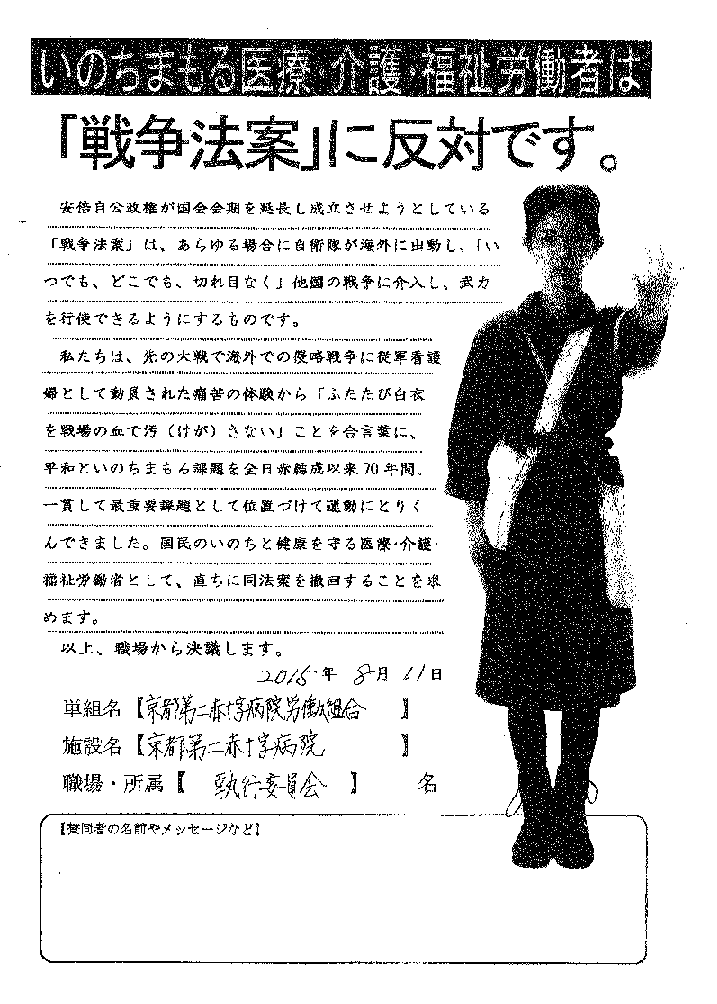 いのちまもる医療・介護・福祉労働者は
「戦争法案」に反対です。
安倍自公政権が国会会期を延長し成立させようとしている
「戦争法案」は、あらゆる場合に自衛隊が海外に出動し、「い
つでも、どこでも、切れ目なく」他国の戦争に介入し、武力
を行使できるようにするものです。
私たちは、先の大戦で海外での侵略戦争に従軍看護
婦として動員された痛苦の体験から「ふたたび白衣
を戦場の血で汚（けが）さない」ことを合言葉に、
平和といのちまもる課題を全日赤結成以来70年間、
一貫して最重要課題として位置づけて運動にとりく
んできました。国民のいのちと健康を守る医療・介護・
福祉労働者として、直ちに同法案を撤回することを求
めます。
以上、職場から決議します。
2015年 8月 11日
単組名【京都第二赤十字病院労働組合】
施設名【京都第二赤十字病院】
職場・所属【執行委員会】 名
【賛同者の名前やメッセージなど】